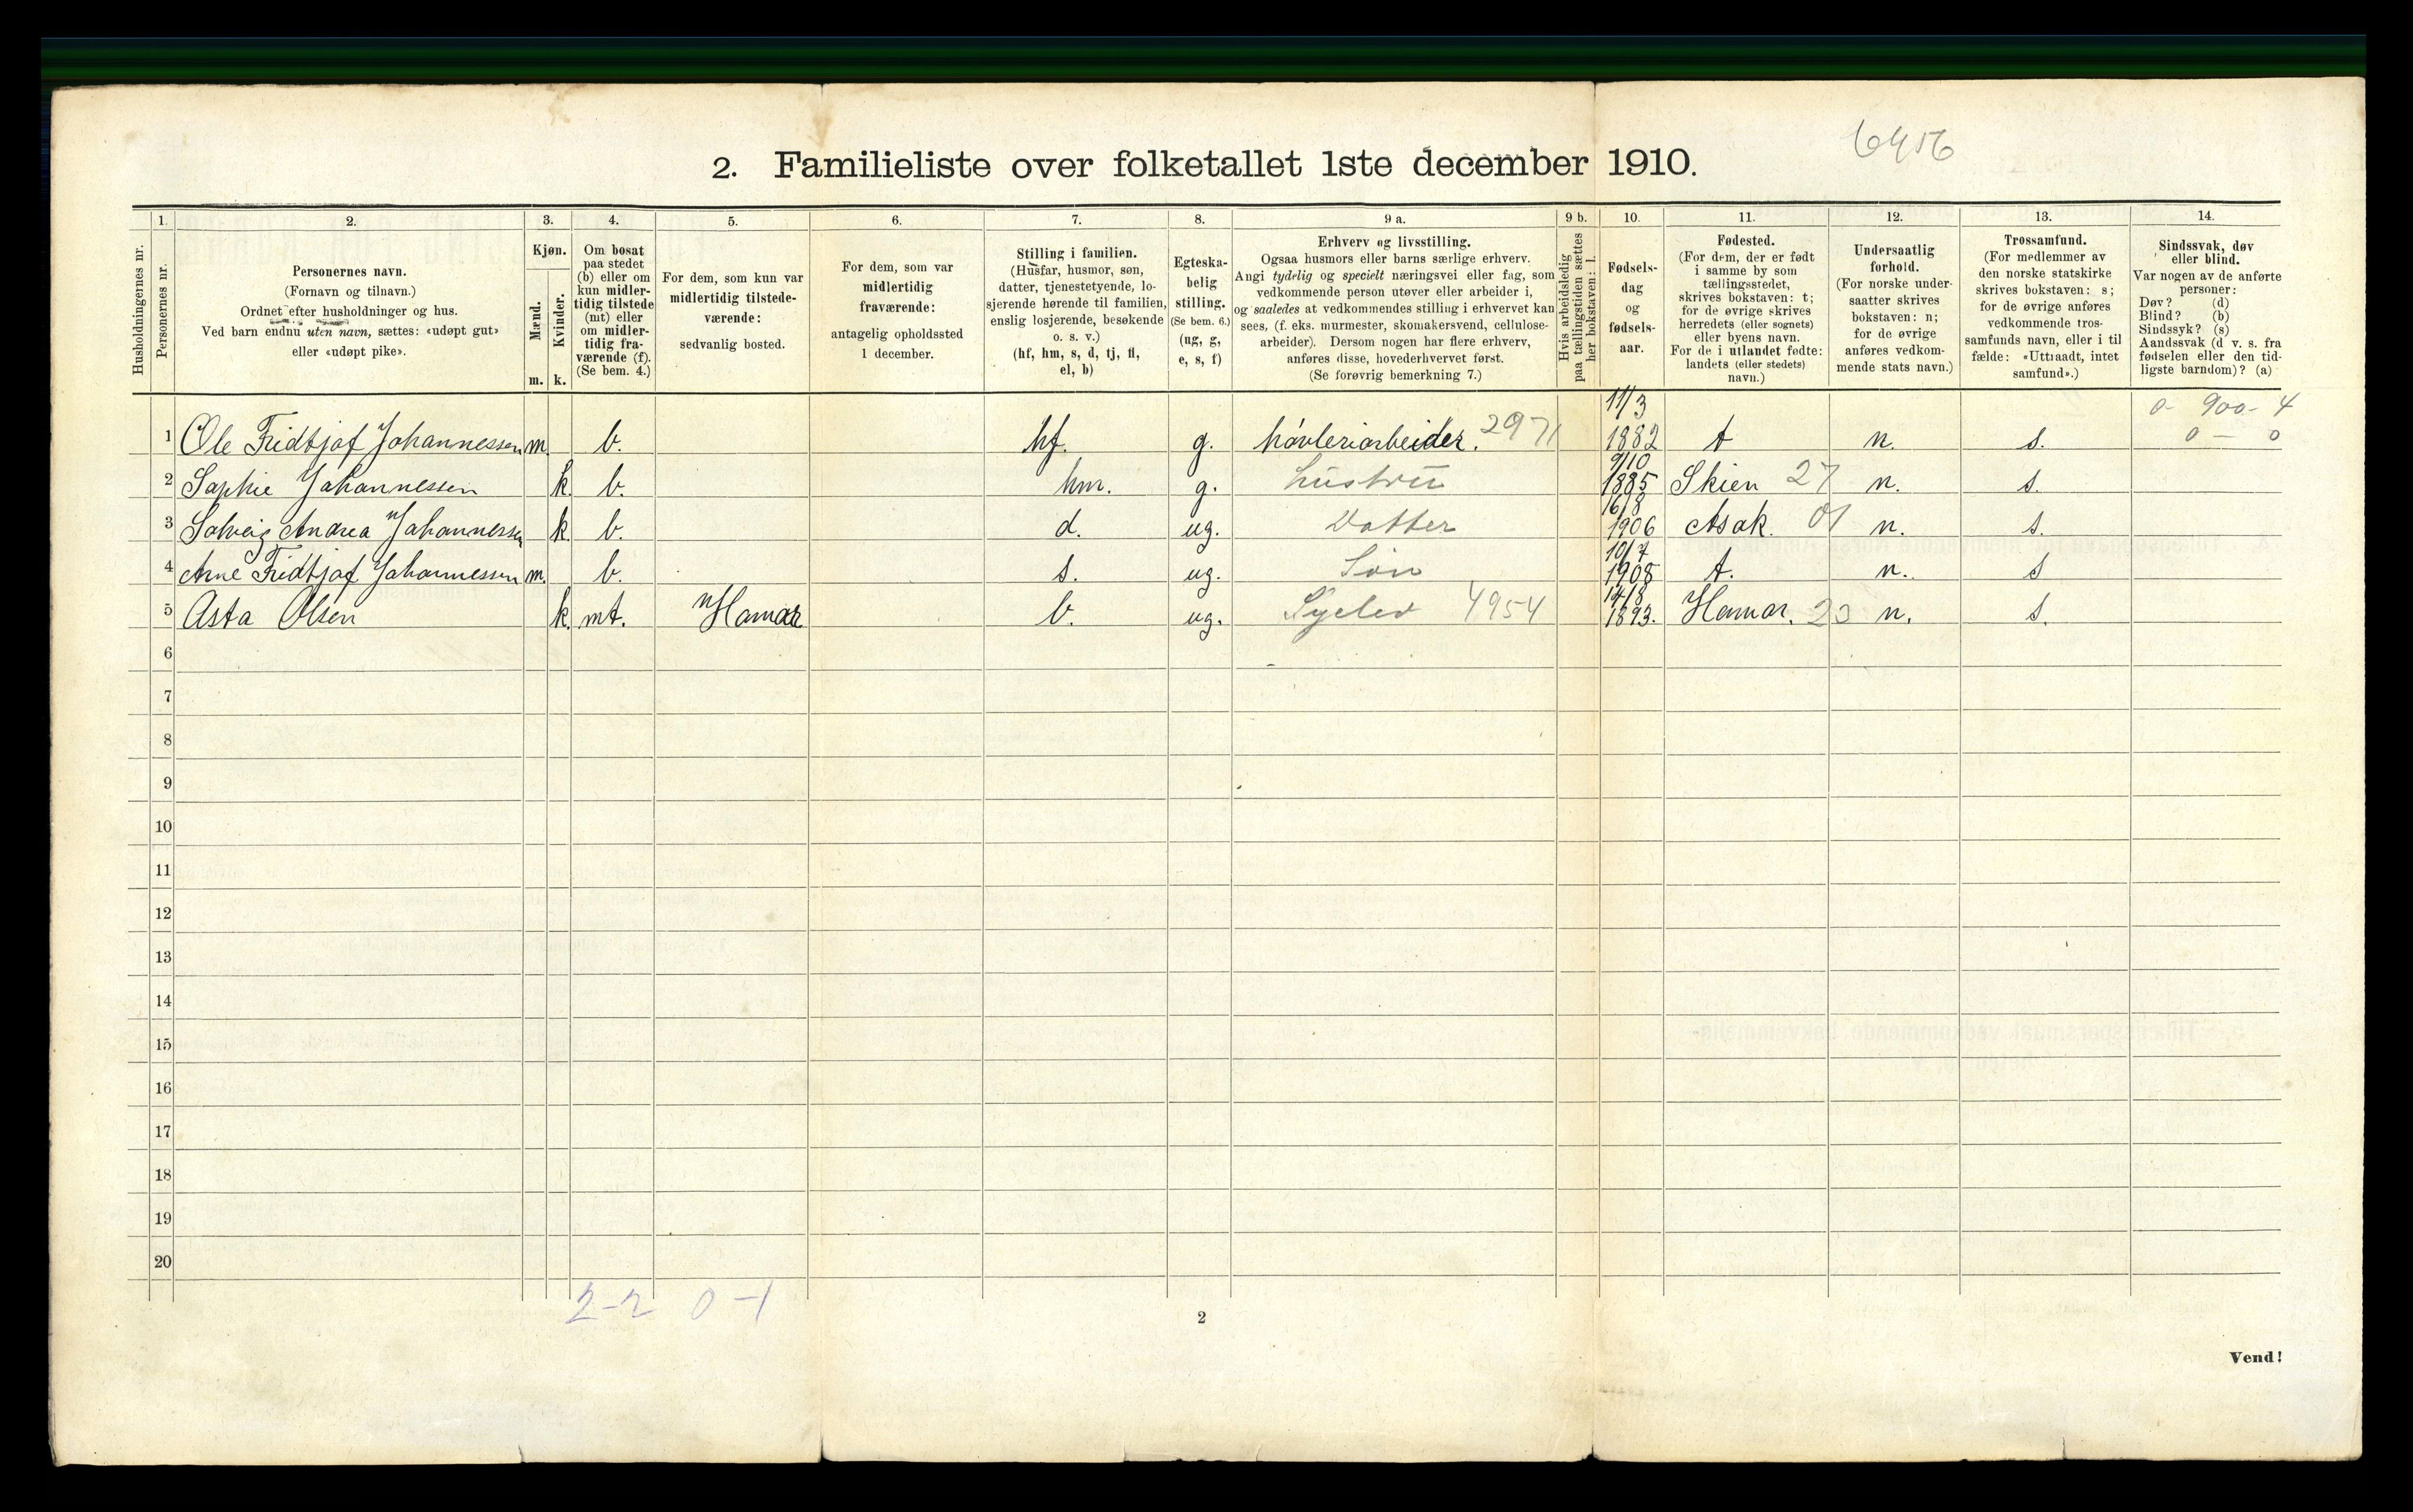 6456
2. Familieliste over folketallet 1ste december 1910.
Husholdningernes nr.
1. Personernes nr.
2. Personernes navn. (Fornavn og tilnavn.) Ordnet efter husholdninger og hus. Ved barn endnu uten navn, sættes: «udøpt gut» eller «udøpt pike».
3. Kjøn. Mænd. m. Kvinder. k.
4. Om bosat paa stedet (b) eller om kun midlertidig tilstede (mt) eller om midlertidig fraværende (f). (Se bem. 4.)
5. For dem, som kun var midlertidig tilstedeværende: sedvanlig bosted.
6. For dem, som var midlertidig fraværende: antagelig opholdssted 1 december.
7. Stilling i familien. (Husfar, husmor, søn, datter, tjenestetyende, losjerende hørende til familien, enslig losjerende, besøkende o. s. v.) (hf, hm, s, d, tj, fl, el, b)
8. Egteskabelig stilling. (Se bem. 6.) (ug, g, e, s, f)
9 a. Erhverv og livsstilling. Ogsaa husmors eller barns særlige erhverv. Angi tydelig og specielt næringsvei eller fag, som vedkommende person utøver eller arbeider i, og saaledes at vedkommendes stilling i erhvervet kan sees, (f. eks. murmester, skomakersvend, cellulosearbeider). Dersom nogen har flere erhverv, anføres disse, hovederhvervet først. (Se forøvrig bemerkning 7.)
9 b. Hvis arbeidsledig paa tællingstiden sættes her bokstaven: l.
10. Fødselsdag og fødselsaar.
11. Fødested. (For dem, der er født i samme by som tællingsstedet, skrives bokstaven: t; for de øvrige skrives herredets (eller sognets) eller byens navn. For de i utlandet fødte: landets (eller stedets) navn.)
12. Undersaatlig forhold. (For norske undersaatter skrives bokstaven: n; for de øvrige anføres vedkommende stats navn.)
13. Trossamfund. (For medlemmer av den norske statskirke skrives bokstaven: s; for de øvrige anføres vedkommende trossamfunds navn, eller i tilfælde: «Uttraadt, intet samfund».)
14. Sindssvak, døv eller blind. Var nogen av de anførte personer: Døv? (d) Blind? (b) Sindssyk? (s) Aandssvak (d v. s. fra fødselen eller den tidligste barndom)? (a)
0- 900- 4
0 — 0
1 Ole Fridtjof Johannessen m. b. hf. g. høvleriarbeider. 2971 11/3 1882 t n. s.
2 Sophie Johannessen k. b. hm. g. hustru 9/10 1885 Skien 27 n. s.
3 Solveig Andrea Johannessen k. b. d. ug. Datter 16/8 1906 Asak. 01 n. s.
4 Arne Fridtjof Johannessen m. b. s. ug. Søn 10/7 1908 t. n. s
5 Asta Olsen k. mt. Hamar b. ug. Syelev 4954 14/8 1893. Hamar. 23 n. s.
6
7
8
9
10
11
12
13
14
15
16
17
18
19
20
2-2 0-1
2
Vend!